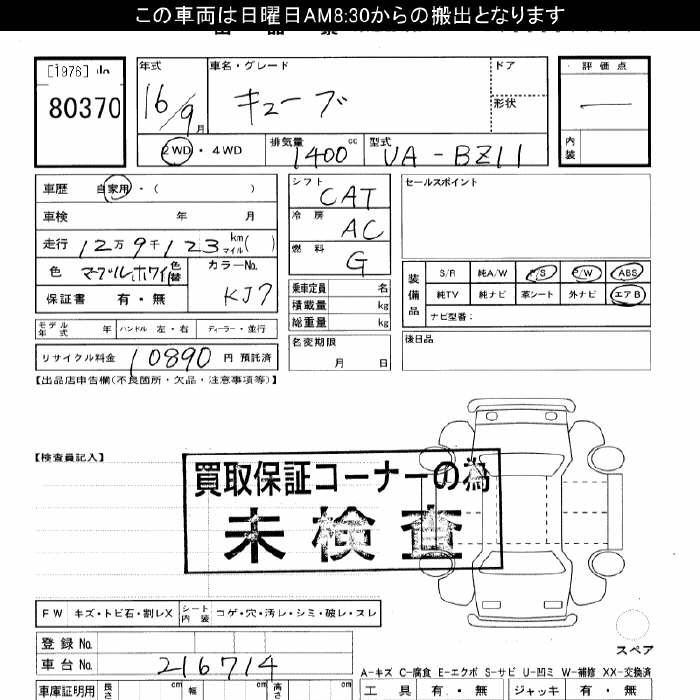 この車両は日曜日AM8:30からの搬出となります
80370
年式
16/9月
車名・グレード
キューブ
ドア
形状
評価点
―
内装
2WD・4WD
排気量
1400cc
型式
UA-BZ11
車歴 自家用・( )
車検 年 月
走行 12万9千123 km マイル( )
色 マーブルホワイ 色替
カラーNo.
KJ7
保証書 有・無
シフト
CAT
冷房
AC
燃料
G
乗車定員 名
積載量 kg
総重量 kg
名変期限
月 日
セールスポイント
装備品
S/R 純A/W P/S P/W ABS
純TV 純ナビ 革シート 外ナビ エアB
ナビ型番:
後日品
モデル年式 年 ハンドル 左・右 ディーラー・並行
リサイクル料金 10890 円 預託済
【出品店申告欄(不良箇所・欠品・注意事項等)】
【検査員記入】
買取保証コーナーの為
未検査
FW キズ・トビ石・割レX シート内装 コゲ・穴・汚レ・シミ・破レ・スレ
登録No.
車台No. 216714
スペア
A-キズ C-腐食 E-エクボ S-サビ U-凹ミ W-補修 XX-交換済
車庫証明用 長さ cm 幅 cm 高さ cm
工具 有・無 ジャッキ 有・無